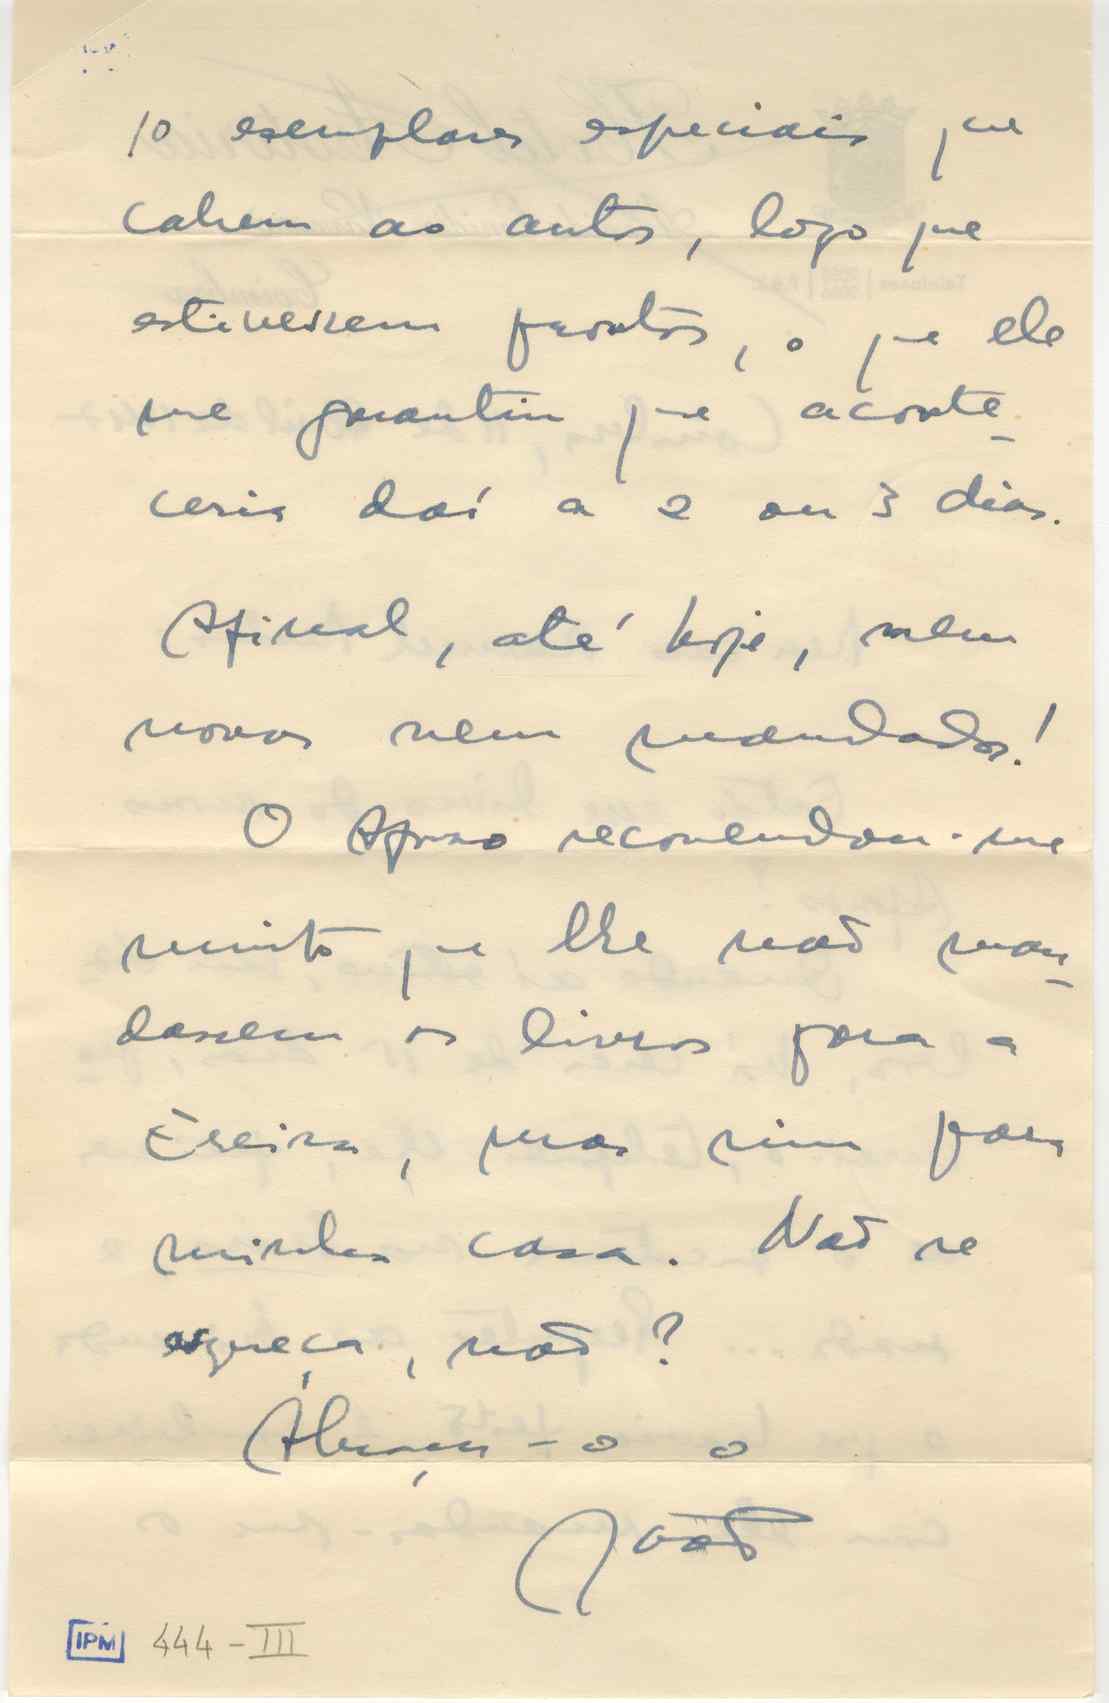 10 exemplares especiais que
cabem ao autor, logo que
estivessem prontos, o que ele
me garantiu que aconte-
ceria daí a 2 ou 3 dias.
Afinal, até hoje, nem
novas nem mandados!
O Afonso recomendou-me
muito que lhe não man-
dassem os livros para a
Ereira, mas sim para
minha casa. Não se
esqueça, não?
Abraça-o o
João
IPM 444-III